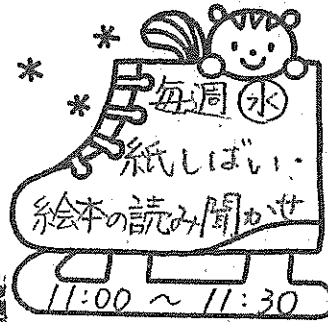 毎週㊌
紙しばい・
絵本の読み聞かせ
11:00 ～ 11:30